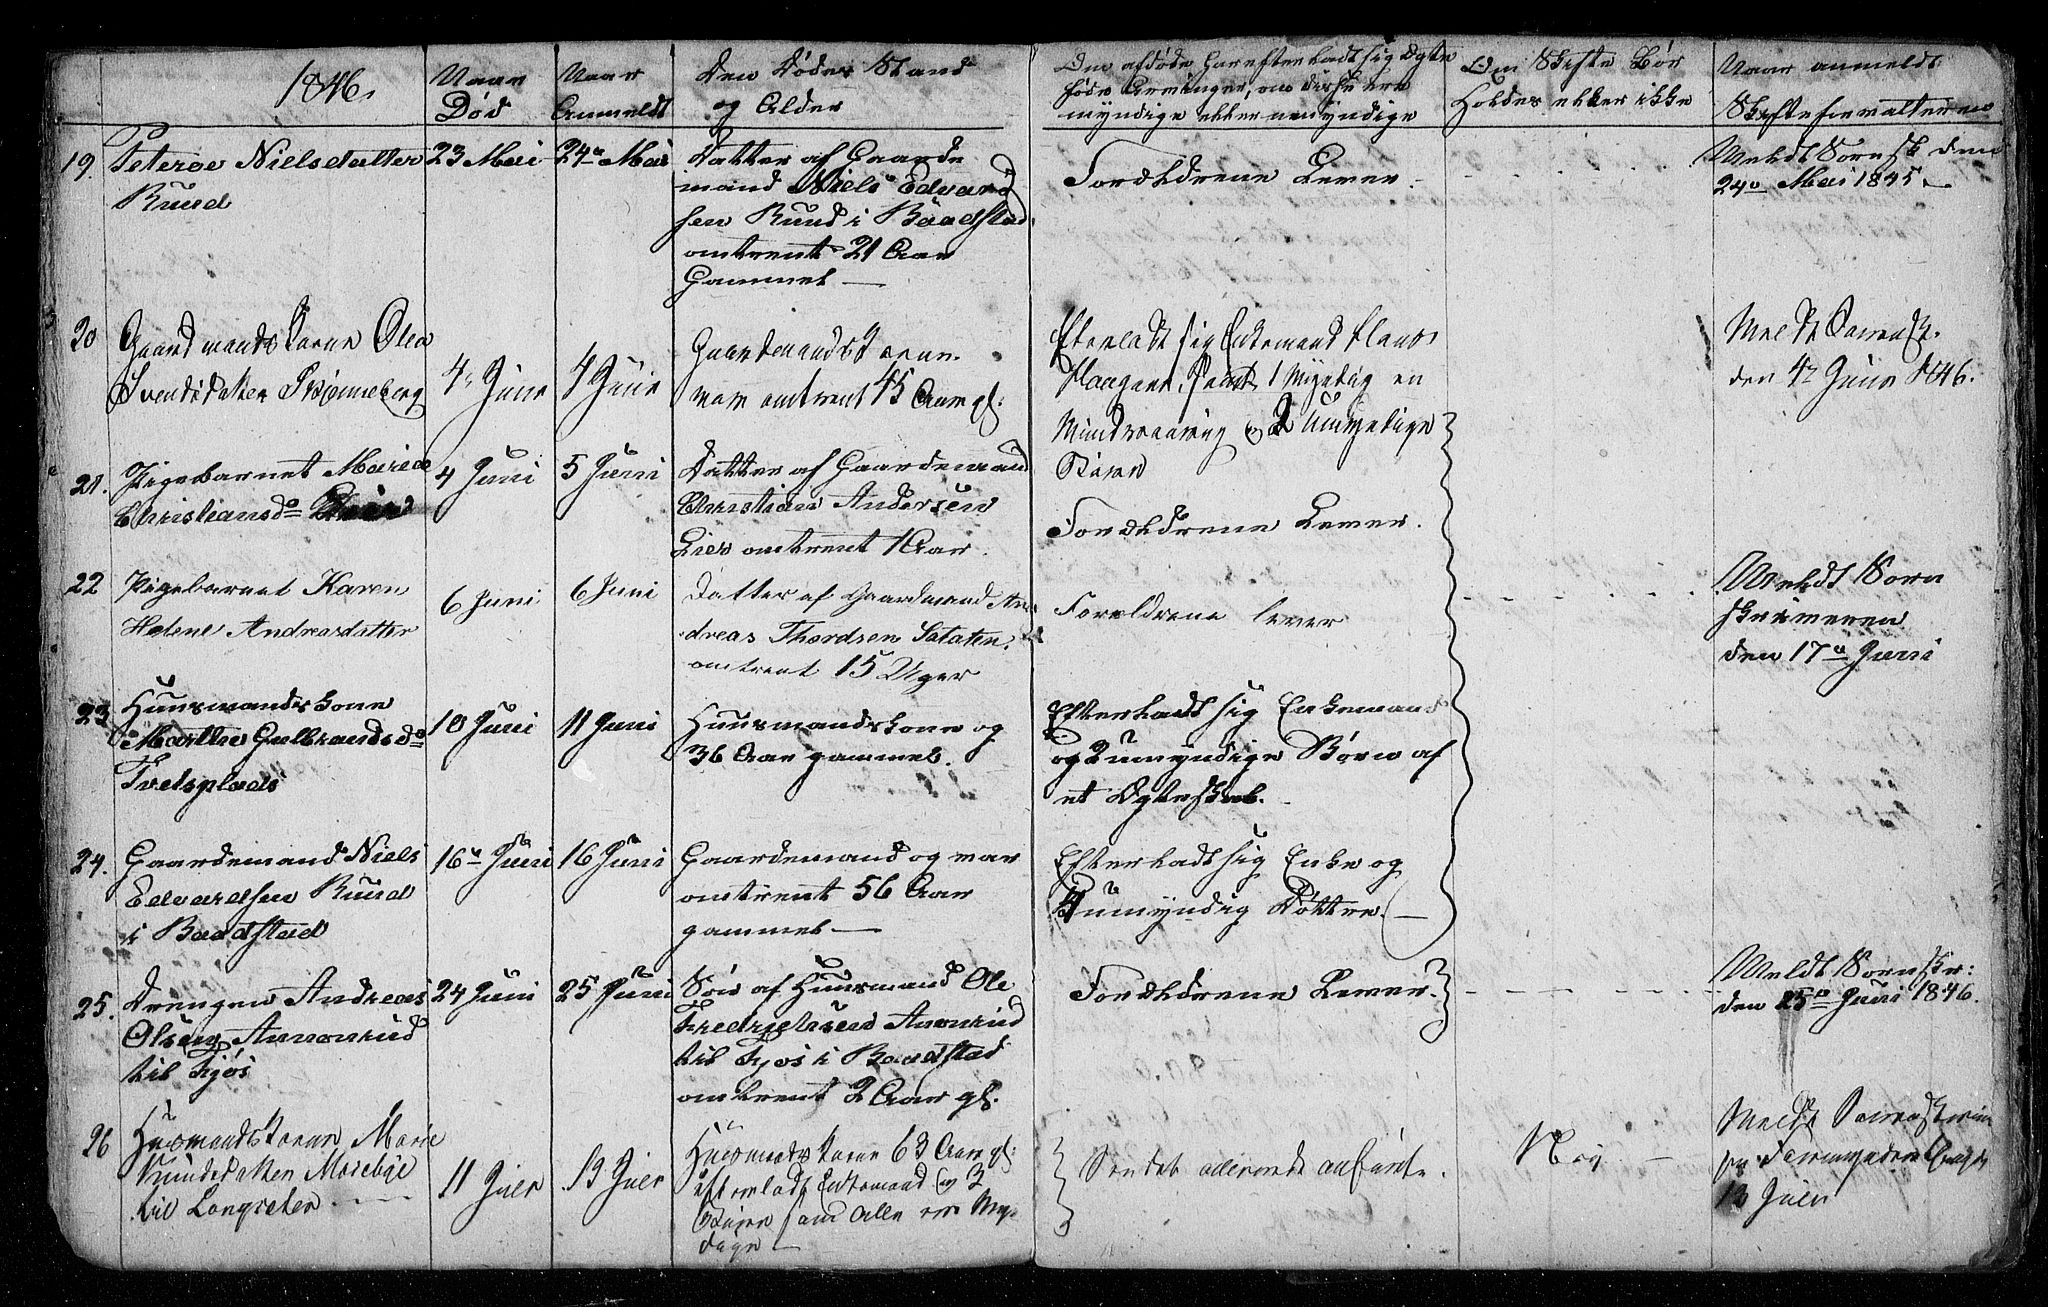 1846.
Naar Død
Naar Anmeldt
Den Dødes Stand og Alder
Om afdøde har efterladt sig Ægte
fødte Arvinger, om disse ere
myndige eller umyndige
Om Skifte Bør
Holdes eller ikke
Naar anmeldt
Skifteforvalteren
19. Peteroe Nielsdatter
Ruud
23 Mai
24de Mai
Datter af Gaarde
mand Niels Edvard
sen Ruud i Baadstad
omtrent 21 Aar
Gammel —
Forældrene Lever.
Meldt Sorensk den
24de Mai 1845 —
20 Gaardmandskonen Olea
Svendsdatter Skjønneberg
4de Juni
4 Juni
Gaardmandskonen
var omtrent 45 Aar gl:
Efterladt sig Enkemand Hans
Haagens. samt 1 Myndig en
Mindreaarig og 2 Umyndige
Børn
Meldt Sorensk.
den 4de Juni 1846.
21. Pigebarnet Marie
Christiansd. Lier
4 Juni
5 Juni
Datter af Gaardemand
Christian Andersen
Lier omtrent 1 Aar.
Forældrene Lever.
22 Pigebarnet Karen
Helene Andreasdatter
6 Juni
6 Juni
Datter af Gaardmand An
dreas Thordsen Sataten.
omtrent 15 Uger
Forældrene lever
Meldt Soren
skriveren
den 17de Juni
23 Huusmandskone
Marthe Gulbrandsd.
Tvetsplads
10 Juni
11 Juni
Huusmandskone og
36 Aar gammel.
Efterladt sig Enkemand
og 2 umyndige Børn af
et Ægteskab.
24. Gaardemand Niels
Edvardsen Ruud
i Baadstad
16de Juni
16 Juni
Gaardemand og var
omtrent 56 Aar
gammel —
Efterladt sig Enke og
4 umyndig Døttre. —
25. Drengen Andreas
Olsen
til Kjøs
24 Juni
25 Juni
Søn af Huusmand Ole
til Kjøs i Baadstad
omtrent 2 Aar gl.
Forældrene Lever.
Meldt Sorenskr:
den 25de Juni 1846.
26 Husmandskonen Marie
Knudsdatter Morebye
til Langreter
11 Juli
13 Juli
Husmandskonen 63 Aar gl:
efterladt Enkemand og 3
Børn som Alle ere My
dige —
Nej —
13 Juli